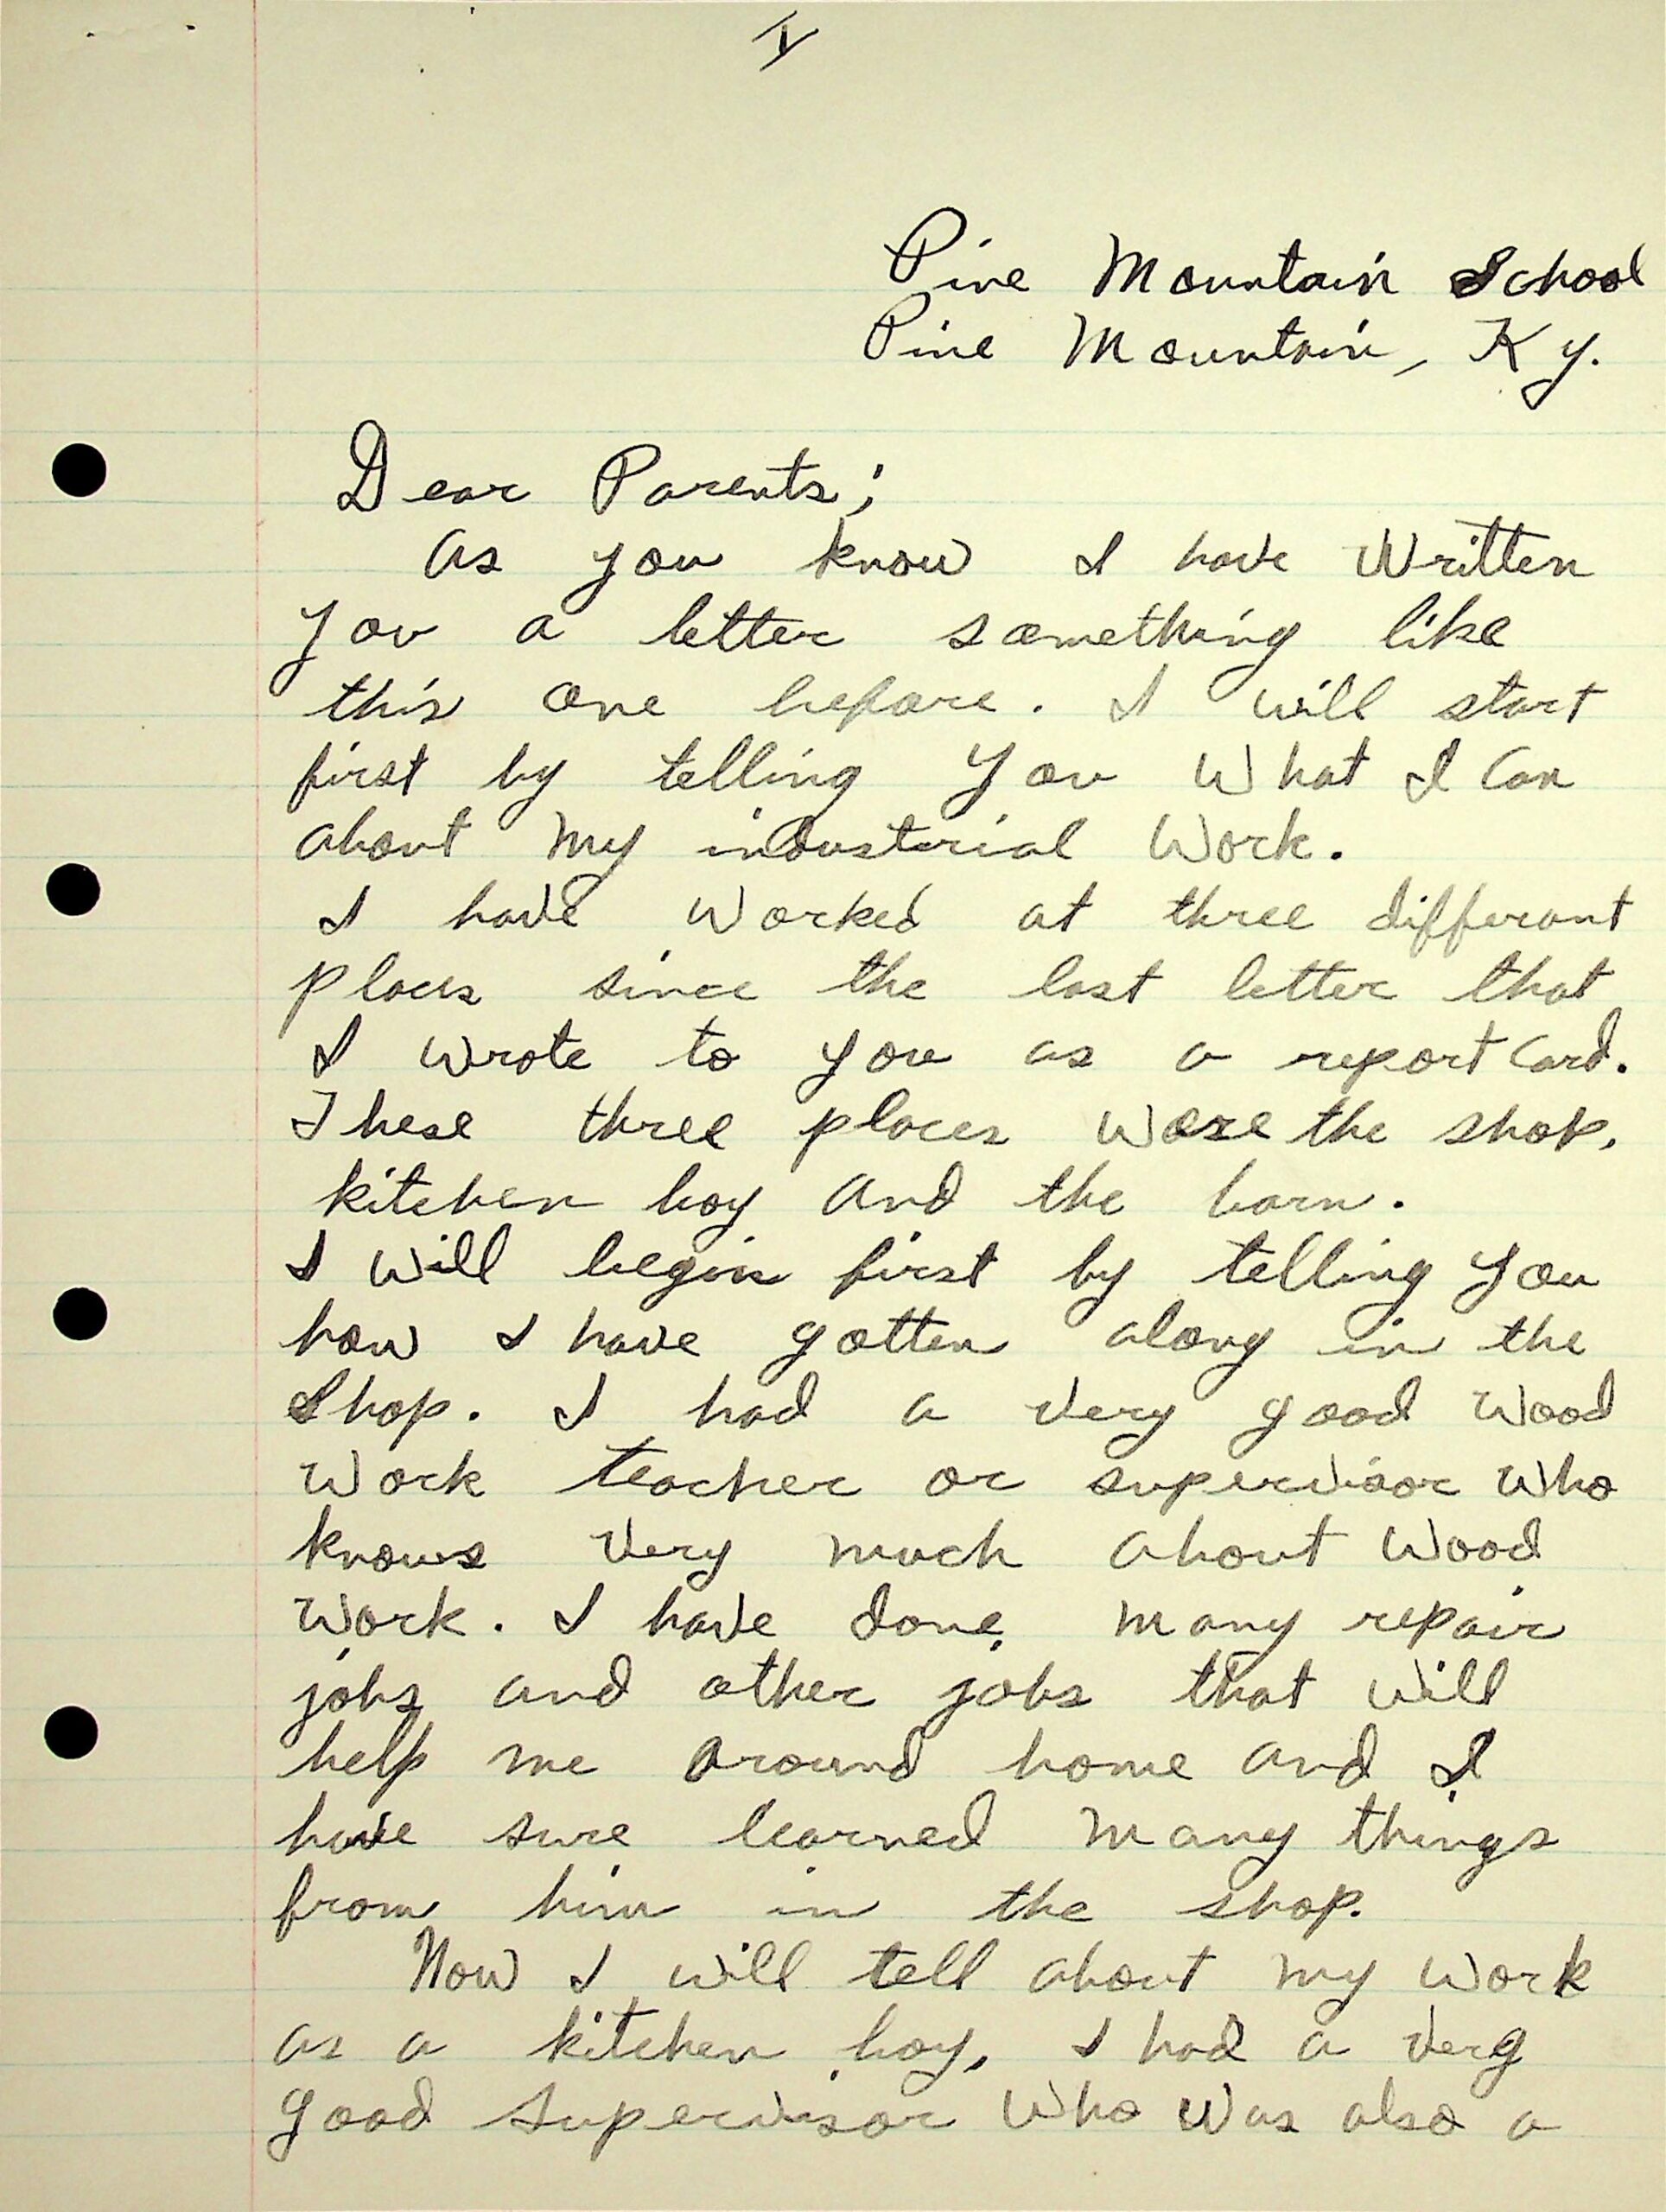 I
Pine Mountain School
Pine Mountain, Ky.
Dear Parents;
As you know I have written
you a letter something like
this one before. I will start
first by telling you what I can
about my industerial work.
I have worked at three differant
places since the last letter that
I wrote to you as a report card.
These three places were the shop,
kitchen boy and the barn.
I will begin first by telling you
how I have gotten along in the
Shop. I had a very good wood
work teacher or supervisor who
knows very much about wood
work. I have done many repair
jobs and other jobs that will
help me around home and I
have sure learned many things
from him in the shop.
Now I will tell about my work
as a kitchen boy, I had a very
good supervisor who was also a